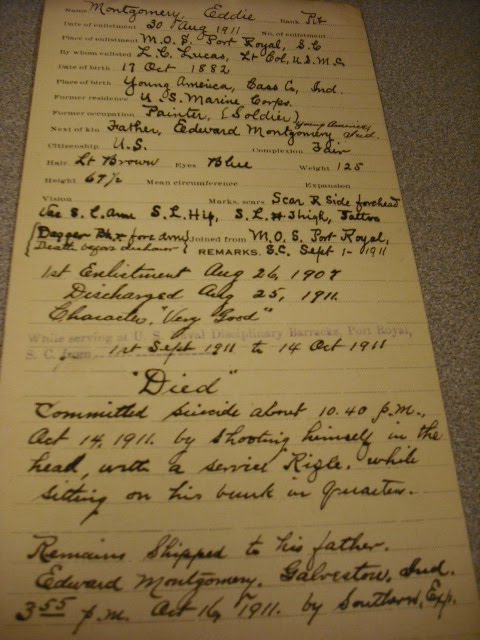 Name Montgomery, Eddie Rank Pvt
Date of enlistment 30 Aug 1911 No. of enlistment
Place of enlistment M.O.S. Port Royal, S.C.
By whom enlisted L. C. Lucas, Lt Col, U.S.M.C.
Date of birth 17 Oct 1882
Place of birth Young America, Cass Co, Ind.
Former residence U.S. Marine Corps.
Former occupation Painter, (Soldier)
Next of kin Father, Edward Montgomery, Young America, Ind.
Citizenship U.S. Complexion Fair
Hair Lt Brown Eyes Blue Weight 125
Height 67½ Mean circumference Expansion
Vision Marks, scars Scar R Side forehead
S. L. Arm S. L. Hip, S. L. Thigh, Tattoo
Dagger forearm Joined from M.O.S. Port Royal,
Death before dishonor REMARKS. S.C. Sept 1 - 1911
1st Enlistment Aug 26, 1907
Discharged Aug 25, 1911.
Character, "Very Good"
While serving at U. S. Naval Disciplinary Barracks, Port Royal,
S. C. from 1st Sept 1911 to 14 Oct 1911
"Died"
Committed suicide about 10.40 p.m.,
Oct 14, 1911. by shooting himself in the
head, with a service Rifle. while
sitting on his bunk in Quarters.
Remains Shipped to his father.
Edward Montgomery. Galveston, Ind.
3 55 p.m. Oct 16, 1911. by Southern, Exp.